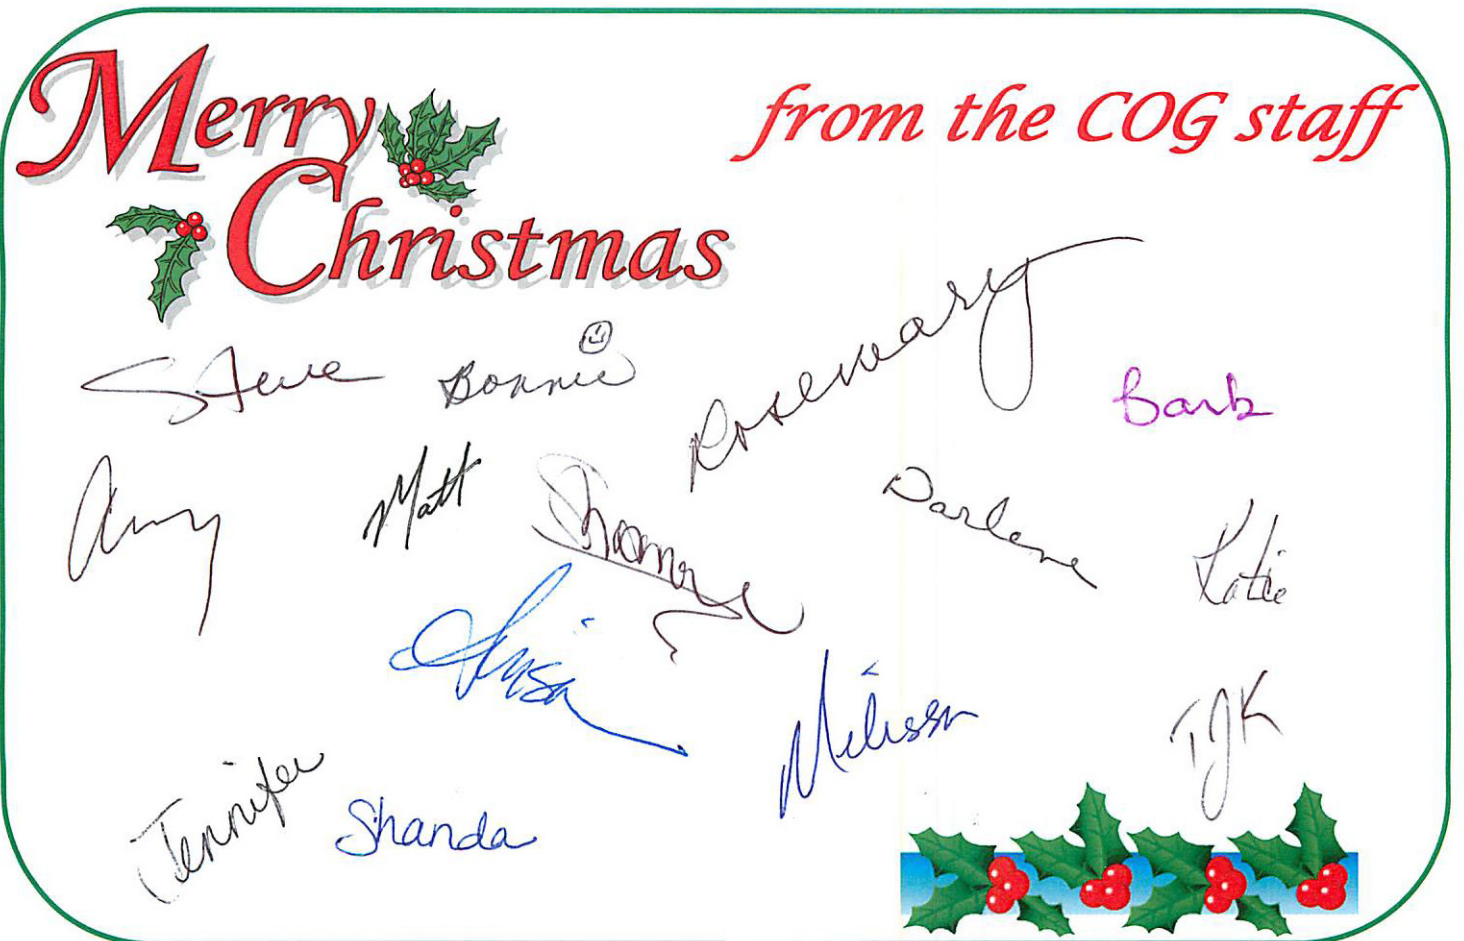 Merry
Christmas
from the COG staff
Steve Bonnie Rosemary Barb
Amy Matt Darlene Katie
Lisa
Melissa TJK
Jennifer Shanda